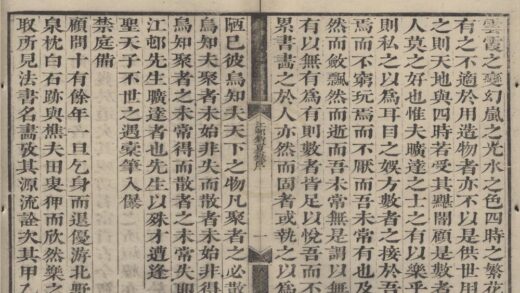 雲霞之變幻嵐之光水之色四時之繁花
有之不適於用造物者亦不以是供世用
人莫之好也惟夫曠達之士之有以樂乎
則天地與四時若受其黜閣顧是
則私之以為耳目之娛方數者之接於吾
焉而不窮玩焉而不厭而吾未常有也及
然而斂飄然而逝而吾未常無是謂以有
有以無有為有則數者皆足以悅吾而不
累書畫之於人亦然而固者或執之以為
陋已彼烏知夫天下之物凡聚者之必散
烏知夫聚者未始非失而散者未始非得
烏知聚者之未常得而散者之未常失耶
江邨先生曠達者也先生以殊才遭逢
聖天子不世之遇橐筆入侍
禁庭備
顧問十有餘年一旦乞身而退優游北墅
泉枕白石跡與樵夫田叟狎而欣然樂之
取所見法書名畫攷其源流詮次其甲乙